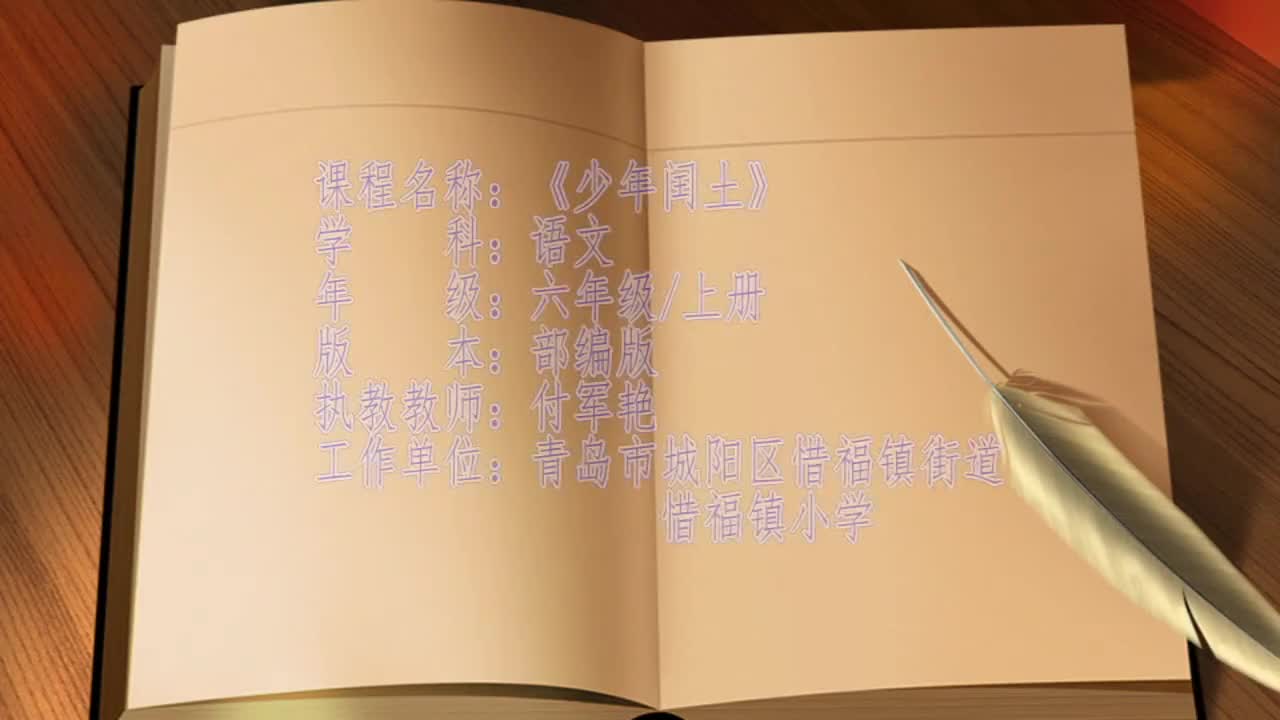 课程名称：《少年闰土》
学　　科：语文
年　　级：六年级/上册
版　　本：部编版
执教教师：付军艳
工作单位：青岛市城阳区惜福镇街道
惜福镇小学